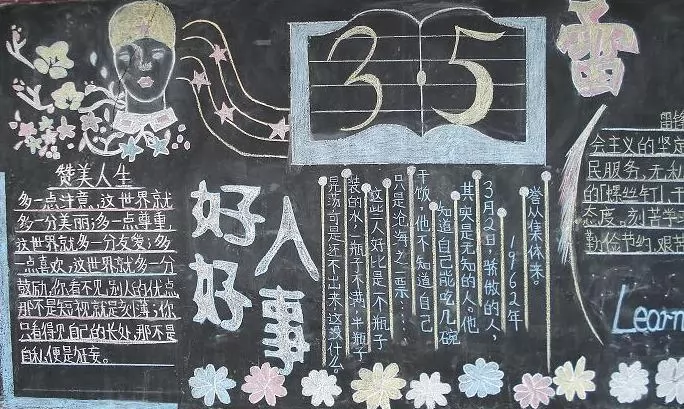 赞美人生
多一点注意,这世界就
多一分美丽;多一点尊重,
这世界就多一分友爱;多
一点喜欢,这世界就多一分
鼓励,你看不见别人的优点
那不是短视就是刻薄;你
只看得见自己的长处,那不是
自私便是狂妄。
35
好好
人事
誉从集体来。
1962年
3月2日骄傲的人,
其实是无知的人。他
知道自己能吃几碗
干饭,他不知道自己
只是沧海之一粟…
这些人好比是一个瓶子
装的水,一瓶子不满,半瓶子
晃荡可是还不出来这算什么。
雷
雷锋
会主义的坚定
民服务,无私
的螺丝钉,干
态度、刻苦学习
勤俭节约、艰苦
Learn